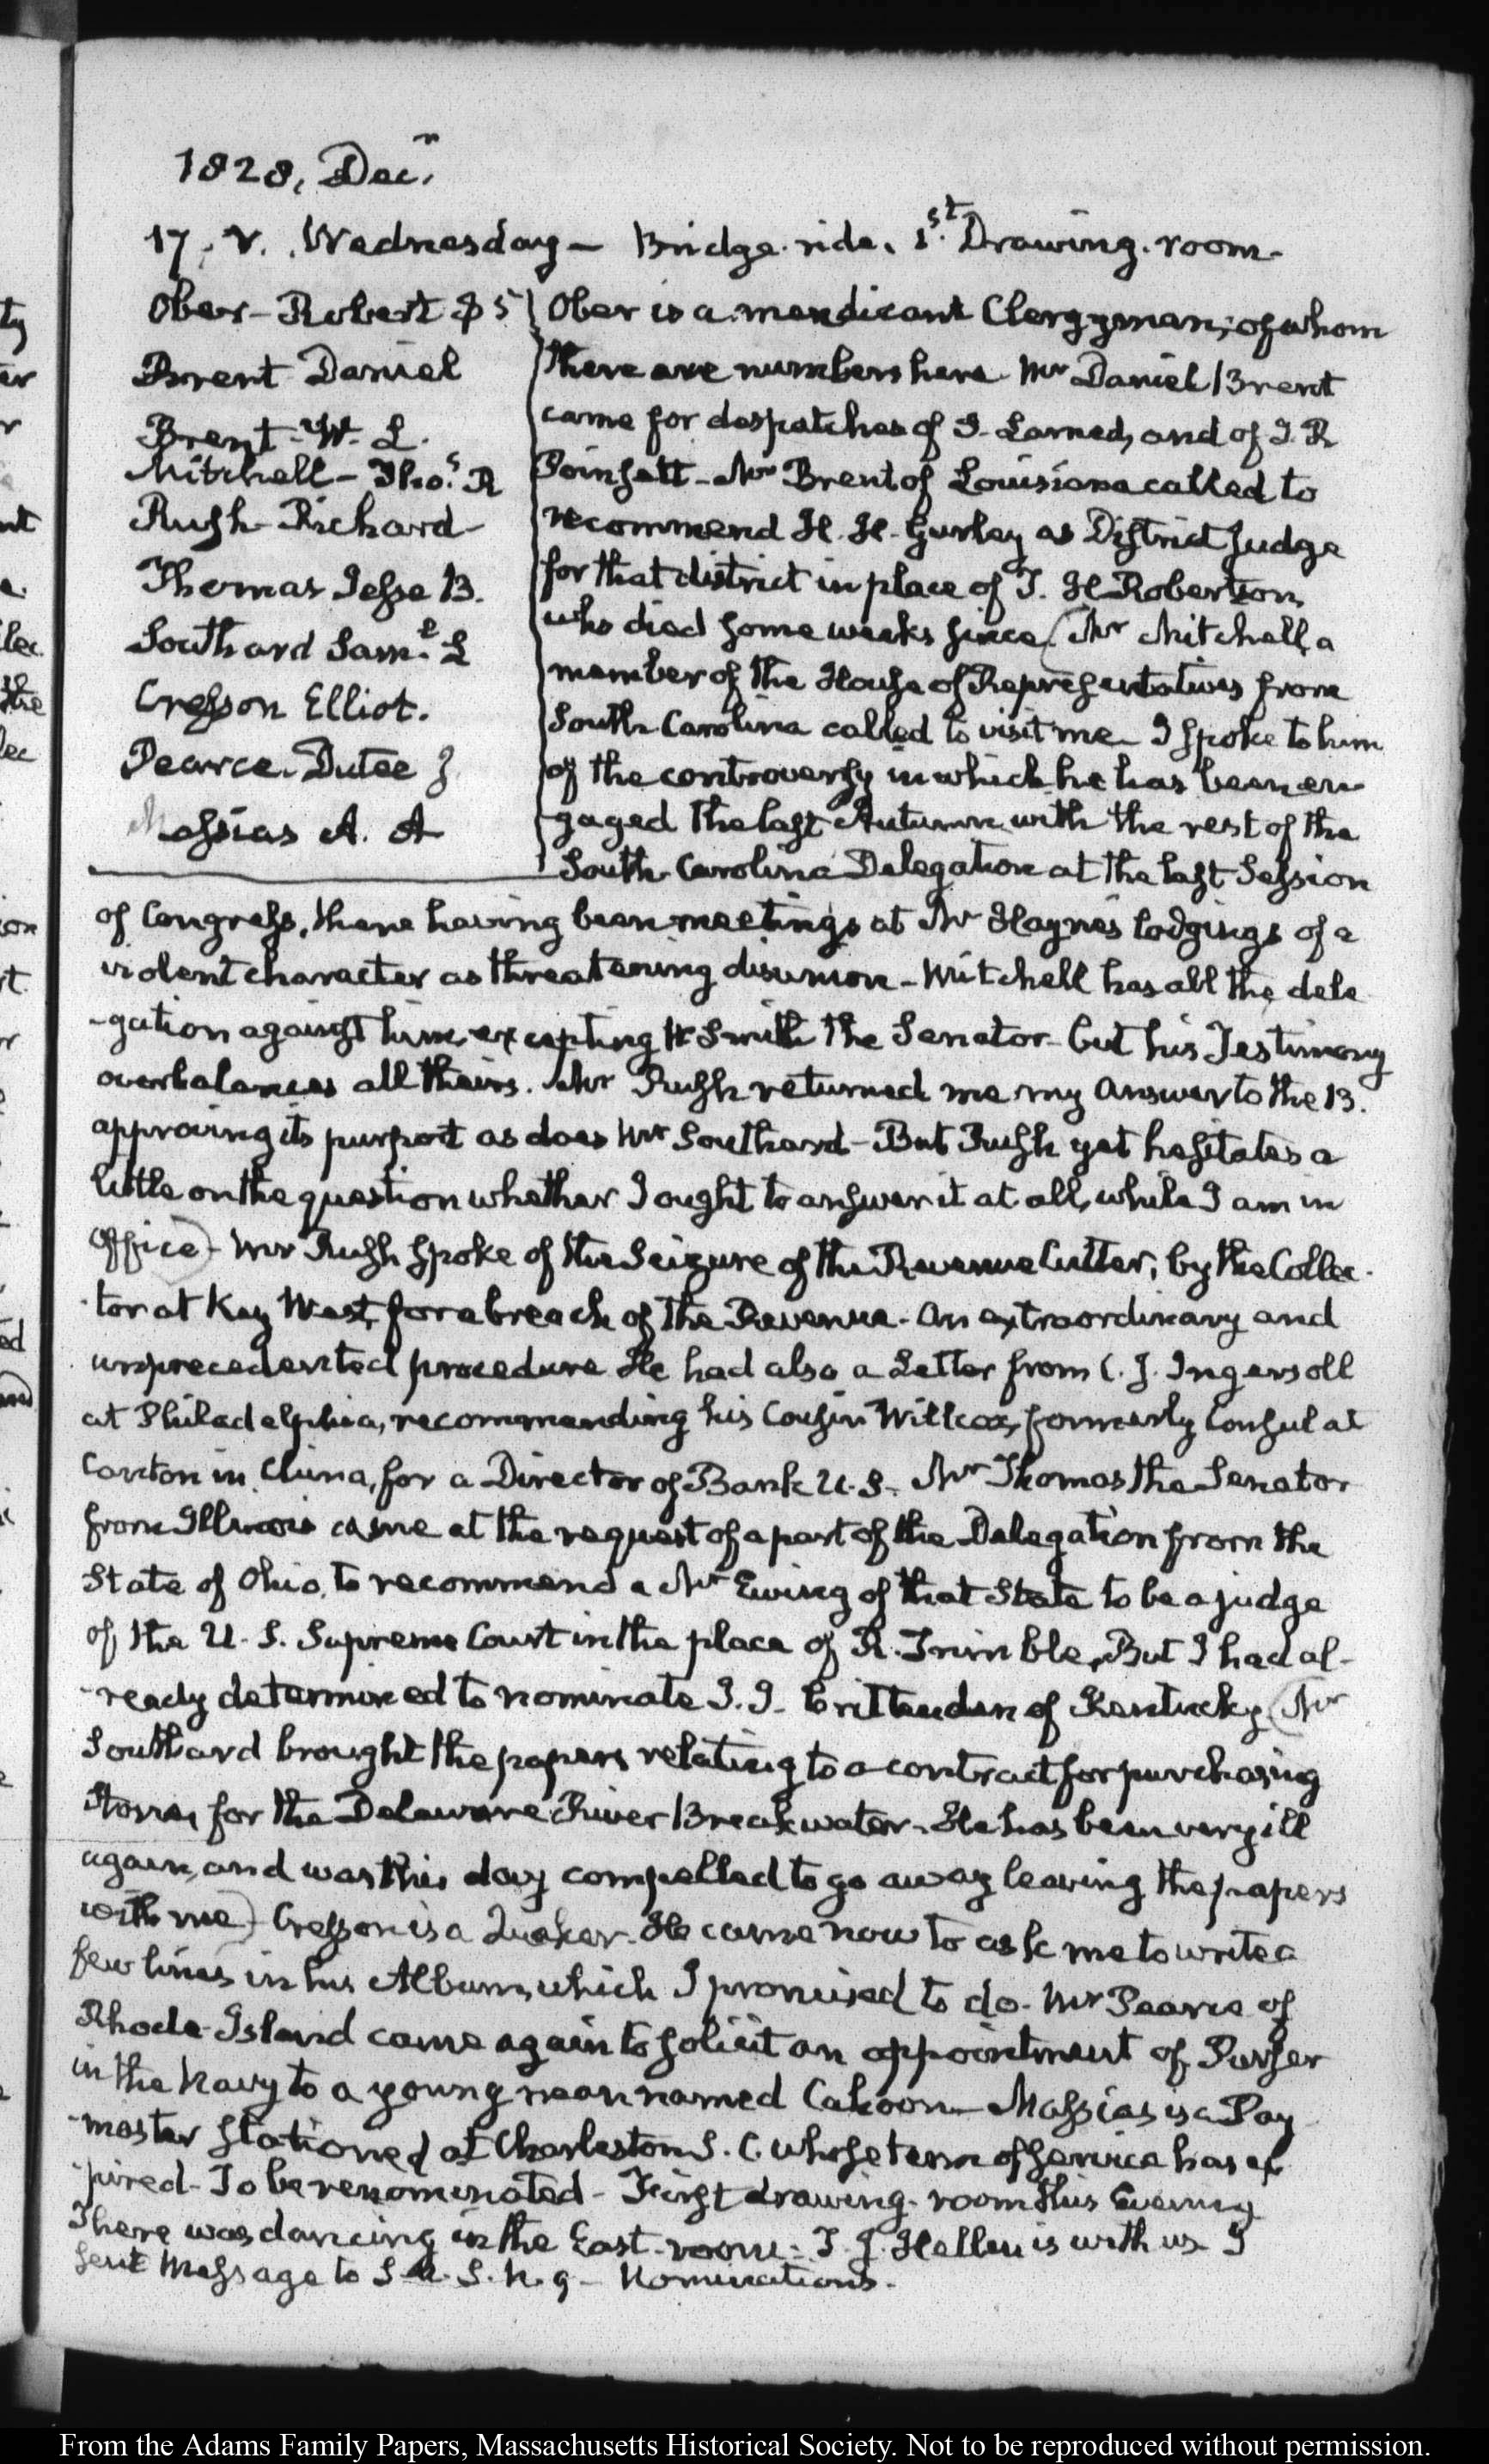 1828. Dec.r
17. V. Wednesday — Bridge ride. 1.st Drawing-room-
Ober - Robert $5
Brent Daniel
Brent - W. L.
Mitchell - Tho.s R
Rush - Richard -
Thomas Jesse B.
Southard Sam.l L
Cresson Elliot.
Pearce. Dutee J.
Massias A. A
Ober is a mendicant Clergyman; of whom
there are numbers here. Mr Daniel Brent
came for despatches of S. Larned, and of J. R
Poinsett - Mr Brent of Louisiana called to
recommend H. H. Gurley as District Judge
for that district in place of T. H Robertson,
who died some weeks since (Mr Mitchell, a
member of the House of Representatives from
South Carolina called to visit me - I spoke to him
of the controversy in which he has been en-
gaged the last Autumn with the rest of the
South-Carolina Delegation at the last Session
of Congress, there having been meetings at Mr Hayne's lodgings of a
violent character as threatening disunion - Mitchell has all the dele
-gation against him, excepting W Smith the Senator - but his Testimony
overbalances all theirs. Mr Rush returned me my Answer to the 13.
approving its purport as does Mr Southard - But Rush yet hesitates a
little on the question whether I ought to answer it at all, while I am in
Office) - Mr Rush spoke of the Seizure of the Revenue Cutter, by the Collec-
-tor at Key West, for a breach of the Revenue. An extraordinary and
unprecedented procedure He had also a Letter from C. J. Ingersoll
at Philadelphia, recommending his Cousin Willcox, formerly Consul at
Canton in China, for a Director of Bank U. S. Mr Thomas the Senator
from Illinois came at the request of a part of the Delegation from the
State of Ohio, to recommend a Mr Ewing of that State to be a judge
of the U. S. Supreme Court in the place of R. Trimble, But I had al-
-ready determined to nominate J. J. Crittenden of Kentucky (Mr
Southard brought the papers relating to a contract for purchasing
stones for the Delaware River Breakwater. He has been very ill
again, and was this day compelled to go away leaving the papers
with me) - Cresson is a Quaker. He came now to ask me to write a
few lines in his Album, which I promised to do. Mr Pearce of
Rhode-Island came again to solicit an appointment of Purser
in the Navy to a young man named Cahoon - Massias is a Pay
-master stationed at Charleston S. C. whose term of service has ex
-pired - To be renominated - First drawing-room this Evening
There was dancing in the East-room - T. J. Hellen is with us I
sent Message to S. U. S. N. 9 - Nominations.
From the Adams Family Papers, Massachusetts Historical Society. Not to be reproduced without permission.